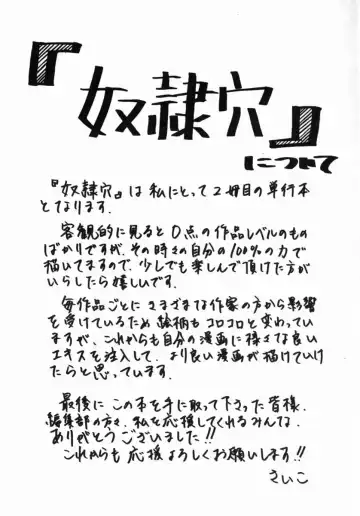 『奴隷穴』
について
『奴隷穴』は私にとって2冊目の単行本
となります。
客観的に見ると0点の作品レベルのもの
ばかりですが、その時々の自分の100%の力で
描いてますので、少しでも楽しんで頂けた方が
いらしたら嬉しいです。
毎作品ごとにさまざまな作家の方から影響
を受けているため絵柄もコロコロと変わってい
ますが、これからも自分の漫画に様々な良い
エキスを注入して、より良い漫画が描けていけ
たらと思っています。
最後にこの本を手に取って下さった皆様、
編集部の方々、私を応援してくれるみんな、
ありがとうございました!!
これからも応援よろしくお願いします!!
さいこ